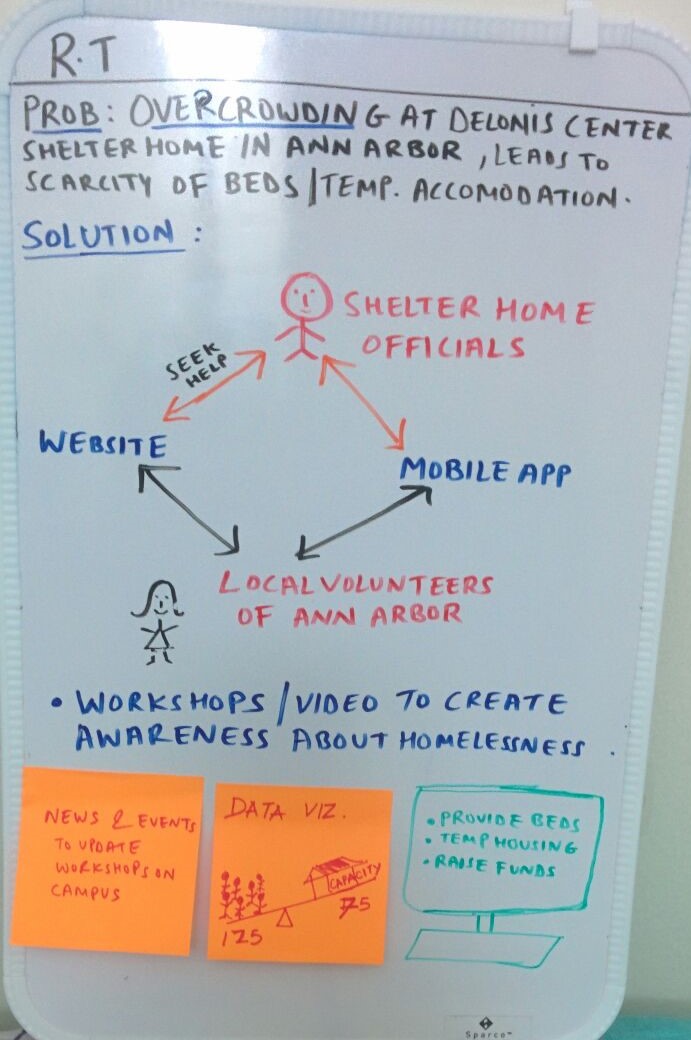 R.T
PROB: OVERCROWDING AT DELONIS CENTER
SHELTER HOME IN ANN ARBOR, LEADS TO
SCARCITY OF BEDS/TEMP. ACCOMODATION.
SOLUTION:
SHELTER HOME
OFFICIALS
SEEK
HELP
WEBSITE
MOBILE APP
LOCAL VOLUNTEERS
OF ANN ARBOR
• WORKSHOPS/VIDEO TO CREATE
AWARENESS ABOUT HOMELESSNESS.
NEWS & EVENTS
TO UPDATE
WORKSHOPS ON
CAMPUS
DATA VIZ.
CAPACITY
75
125
• PROVIDE BEDS
• TEMP HOUSING
• RAISE FUNDS
Sparco™